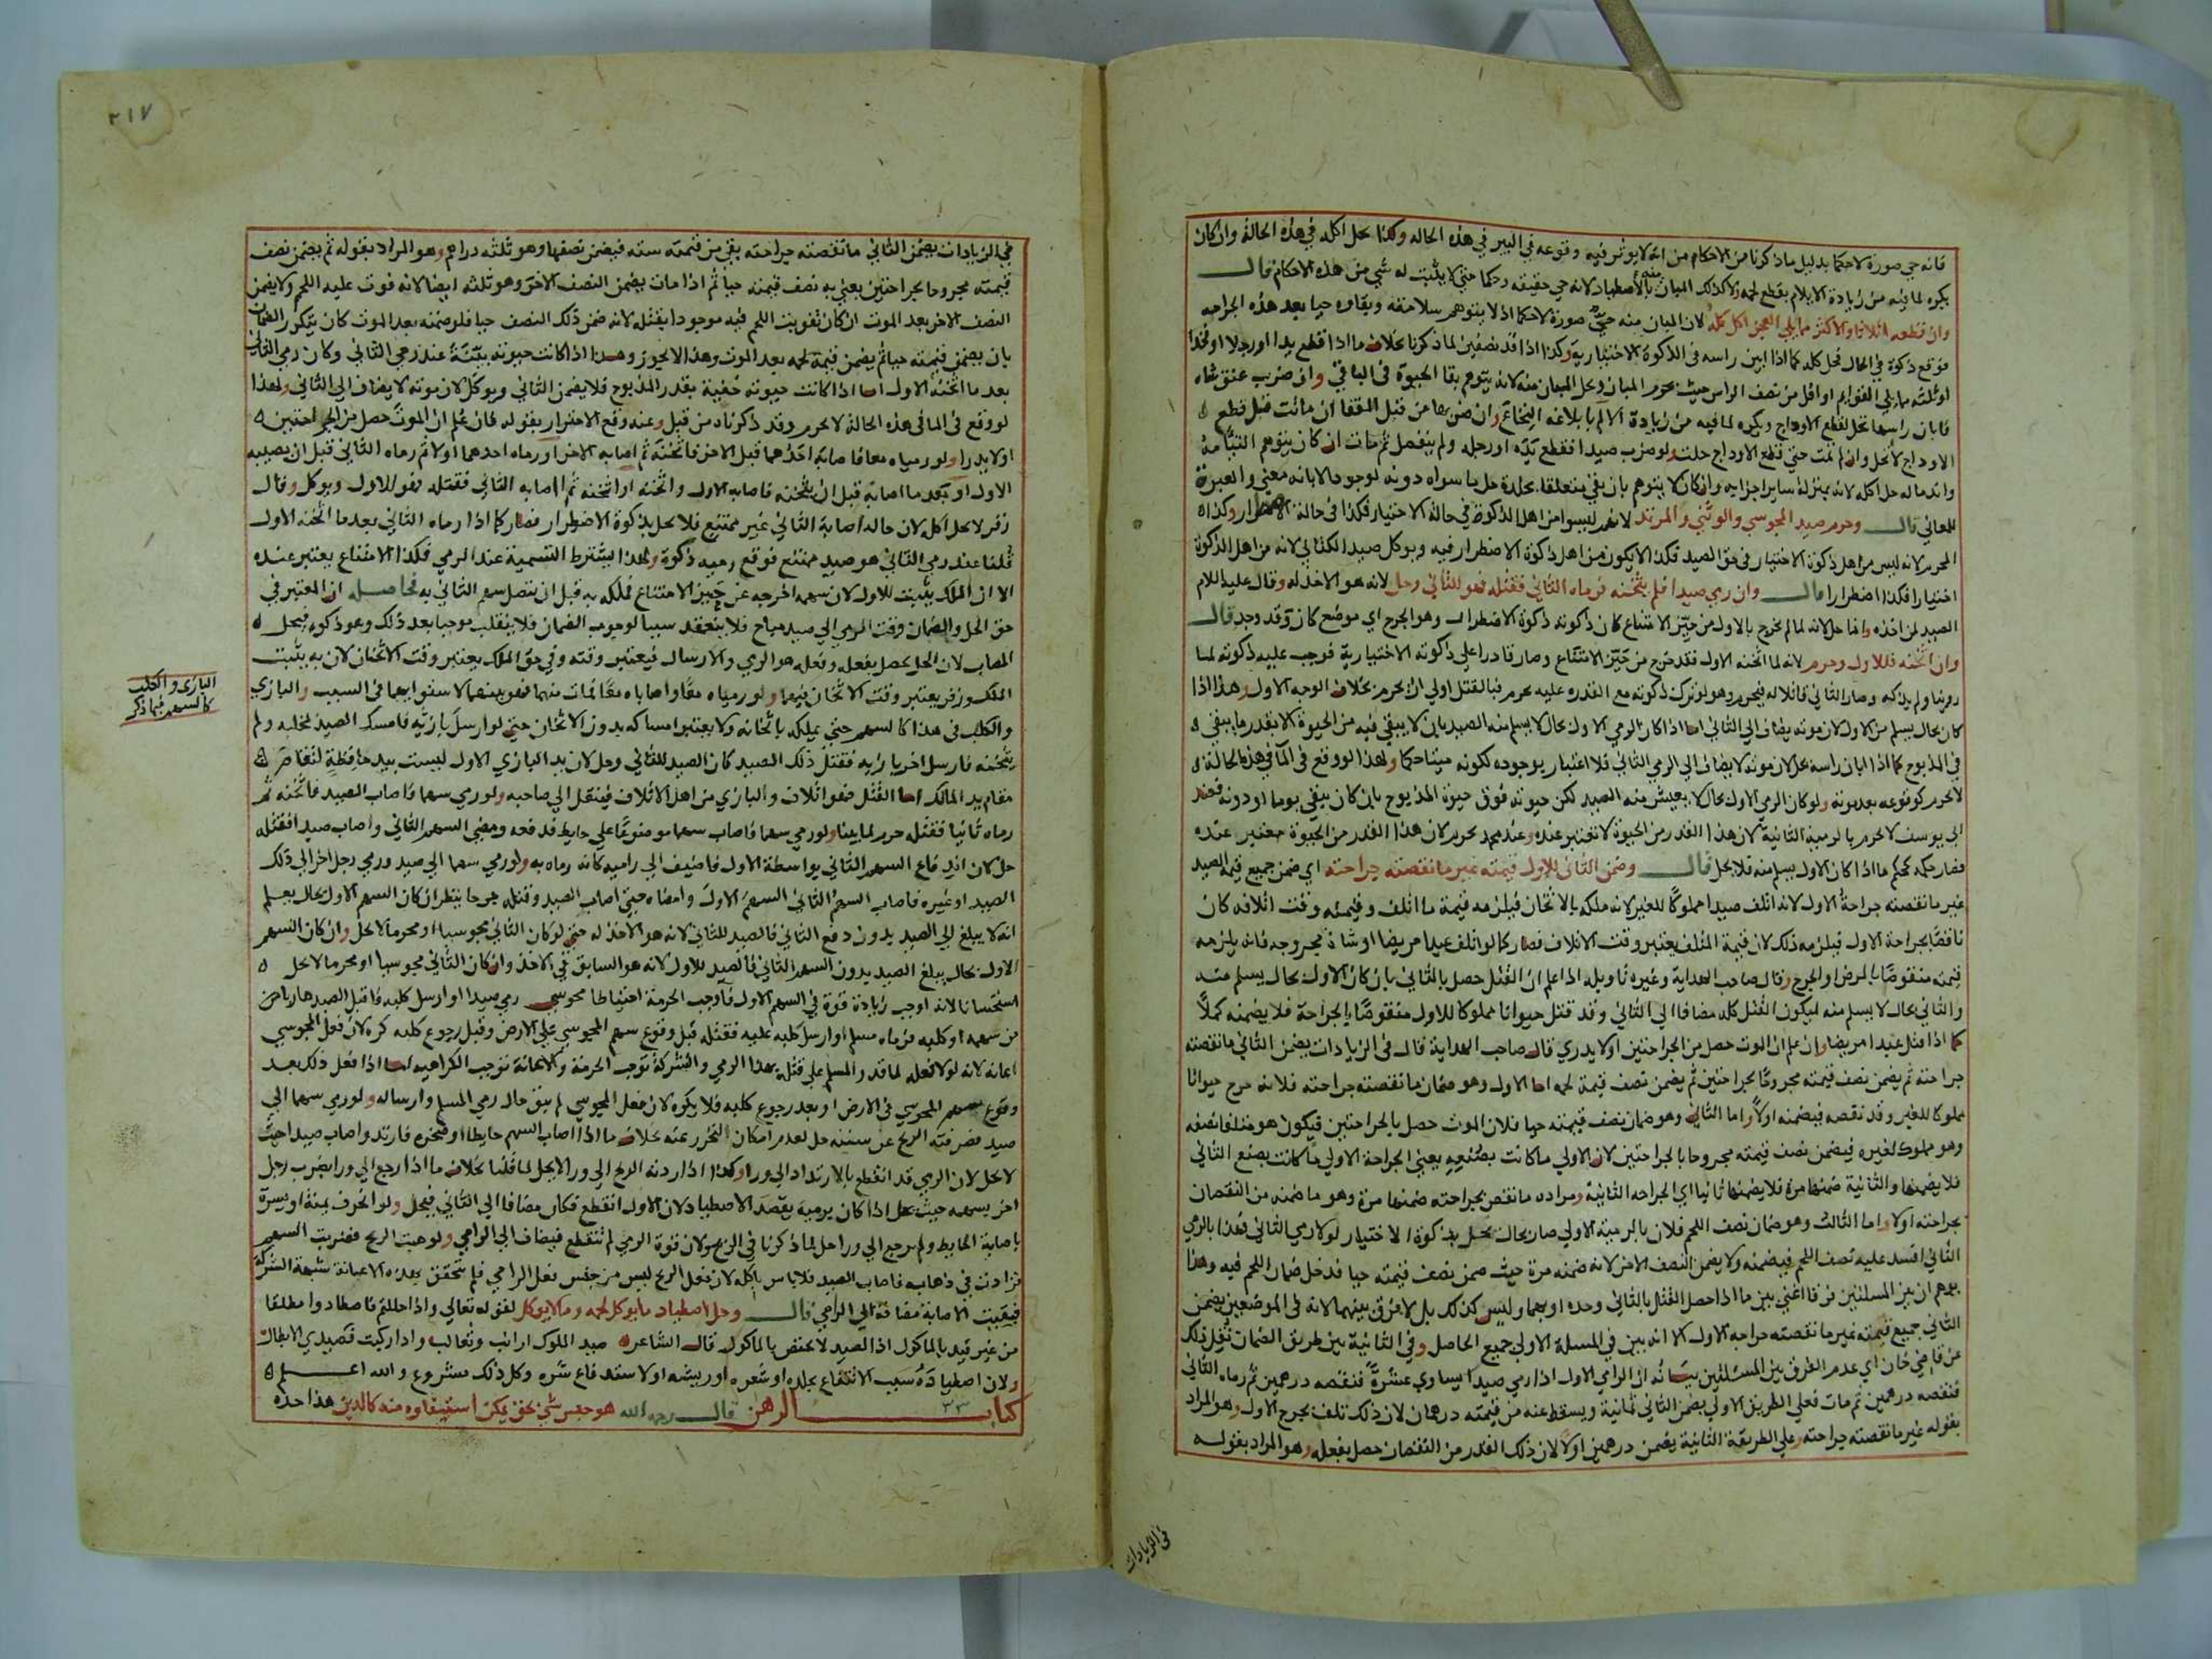 فانه حي صورة لا حكما بدليل ما ذكرنا من الاحكام من انه لا يوثر فيه وقوعه في البير في هذه الحاله وكذا يحل اكله في هذه الحالة وان كان
يكره لما فيه من زيادة الايلام بقطع لحمه ولا كذلك المبان منه بالاصطياد لانه حي حقيقه وحكما حتي لا يثبت له شي من هذه الاحكام قال
وان قطعه اثلاثا والاكثر مما يلي العجز اكل كله لان المبان منه حي صورة لا حكما اذ لا يتوهم سلامته وبقاوه حيا بعد هذه الجراحه
فوقع ذكوة في الحال فحل كله كما اذا ابين راسه في الذكوة الاختياريه وكذا اذا قده نصفين لما ذكرنا بخلاف ما اذا قطع يدا او رجلا او فخذا
او ثلثه مما يلي القوايم او اقل من نصف الراس حيث يحرم المبان ويحل المبان منه لانه يتوهم بقا الحيوة في الباقي وان ضرب عنق شاه
فابان راسها تحل لقطع الاوداج ويكره لما فيه من زيادة الالم بابلاغه النخاع وان ضربها من قبل القفا ان ماتت قبل قطع
الاوداج لا تحل وان لم تمت حتي قطع الاوداج حلت ولو ضرب صيدا فقطع يده او رجله ولم ينفصل ثم مات ان كان يتوهم التيامه
واندماله حل اكله لانه بمنزلة ساير اجزايه وان كان لا يتوهم بان بقي متعلقا بجلدة حل ما سواه دونه لوجود الابانه معني والعبرة
للمعاني قال وحرم صيد المجوسي والوثني والمرتد لانهم ليسوا من اهل الذكوة في حالة الاختيار فكذا في حالة الاضطرار وكذا
المحرم لانه ليس من اهل ذكوة الاختيار في حق الصيد فكذا لا يكون من اهل ذكوة الاضطرار فيه ويوكل صيد الكتابي لانه من اهل الذكوة
اختيارا فكذا اضطرارا قال وان رمي صيدا فلم يثخنه فرماه الثاني فقتله فهو للثاني وحل لانه هو الاخذ له وقال عليه السلام
الصيد لمن اخذه وانما حل لانه لما لم يخرج بالاول من حيز الامتناع كان ذكوته ذكوة الاضطرار وهو الجرح اي موضع كان وقد وجد قال
وان اثخنه فللاول وحرم لانه لما اثخنه الاول فقد خرج من حيز الامتناع وصار قادرا علي ذكوته الاختيارية فوجب عليه ذكوته لما
روينا ولم يذكه وصار الثاني قاتلا له فيحرم وهو لو ترك ذكوته مع القدره عليه يحرم فبالقتل اولي ان يحرم بخلاف الوجه الاول وهذا اذا
كان بحال يسلم من الاول لان موته يضاف الي الثاني اما اذا كان الرمي الاول بحال لا يسلم منه الصيد بان لا يبقي فيه من الحيوة الا بقدر ما يبقي
في المذبوح كما اذا ابان راسه يحل لان موته لا يضاف الي الرمي الثاني فلا اعتبار بوجوده لكونه ميتا حكما ولهذا لو وقع في الما في هذه الحالة
لا يحرم كوقوعه بعد موته ولو كان الرمي الاول بحال لا يعيش منه الصيد لكن حيوته فوق حيوة المذبوح بان كان يبقي يوما او دونه فعند
ابي يوسف لا يحرم بالرمية الثانية لان هذا القدر من الحيوة لا تعتبر عنده وعند محمد يحرم لان هذا القدر من الحيوة معتبر عنده
فصار حكمه كحكم ما اذا كان الاول يسلم منه فلا يحل قال وضمن الثاني للاول قيمته غير ما نقصته جراحته اي ضمن جميع قيمة الصيد
غير ما نقصته جراحة الاول لانه اتلف صيدا مملوكا للغير لانه ملكه بالاثخان فيلزمه قيمة ما اتلف وقيمته وقت اتلافه كان
ناقصا بجراحة الاول فيلزمه ذلك لان قيمة المتلف يعتبر وقت الاتلاف فصار كما لو اتلف عبدا مريضا او شاة مجروحه فانه يلزمه
قيمته منقوصا بالمرض او الجرح وقال صاحب الهداية وغيره تاويله اذا علم ان القتل حصل بالثاني بان كان الاول بحال يسلم منه
والثاني بحال لا يسلم منه ليكون القتل كله مضافا الي الثاني وقد قتل حيوانا مملوكا للاول منقوصا بالجراحة فلا يضمنه كملا
كما اذا قتل عبدا مريضا وان علم ان الموت حصل من الجراحتين او لا يدري قال صاحب الهداية قال في الزيادات يضمن الثاني ما نقصته
جراحته ثم يضمن نصف قيمته مجروحا بجراحتين ثم يضمن نصف قيمة لحمه اما الاول وهو ضمان ما نقصته جراحته فلانه جرح حيوانا
مملوكا للغير وقد نقصه فيضمنه اولا واما الثاني وهو ضمان نصف قيمته حيا فلان الموت حصل بالجراحتين فيكون هو متلفا نصفه
وهو مملوك لغيره فيضمن نصف قيمته مجروحا بالجراحتين لان الاولي ما كانت بصنعه يعني الجراحة الاولي ما كانت بصنع الثاني
فلا يضمنها والثانية ضمنها مرة فلا يضمنها ثانيا اي الجراحه الثانية ومراده ما نقص بجراحته ضمنها مرة وهو ما ضمنه من النقصان
بجراحته اولا واما الثالث وهو ضمان نصف اللحم فلان بالرمية الاولي صار بحال يحل بذكوة الاختيار لولا رمي الثاني فهذا بالرمي
الثاني افسد عليه نصف اللحم فيضمنه ولا يضمن النصف الاخر لانه ضمنه مرة حيث ضمن نصف قيمته حيا فدخل ضمان اللحم فيه وهذا
يوهم ان بين المسلتين فرقا اعني بين ما اذا حصل القتل بالثاني وحده او بهما وليس كذلك بل لا فرق بينهما لانه في الموضعين يضمن
الثاني جميع قيمته غير ما نقصته جراحه الاول الا انه بين في المسلة الاولي جميع الحاصل وفي الثانية بين طريق الضمان نقل ذلك
عن قاضي خان اي عدم الفرق بين المسئلتين بيانه ان الرامي الاول اذا رمي صيدا يساوي عشرة فنقصه درهمين ثم رماه الثاني
فنقصه درهمين ثم مات فعلي الطريق الاولي يضمن الثاني ثمانية ويسقط عنه من قيمته درهمان لان ذلك تلف بجرح الاول وهو المراد
بقوله غير ما نقصته جراحته وعلي الطريقة الثانية يضمن درهمين اولا لان ذلك القدر من النقصان حصل بفعله وهو المراد بقوله
في الزيادات
٣١٧
في الزيادات يضمن الثاني ما نقصته جراحته بقي من قيمته سته فيضمن نصفها وهو ثلثه دراهم وهو المراد بقوله ثم يضمن نصف
قيمته مجروحا بجراحتين يعني به نصف قيمته حيا ثم اذا مات يضمن النصف الاخر وهو ثلثه ايضا لانه فوت عليه اللحم ولا يضمن
النصف الاخر بعد الموت ان كان تفويت اللحم فيه موجودا بقتله لانه ضمن ذلك النصف حيا فلو ضمنه بعد الموت كان يتكرر الضمان
بان يضمن قيمته حيا ثم يضمن قيمة لحمه بعد الموت وهذا لا يجوز وهذا اذا كانت حيوته بينة عند رمي الثاني وكان رمي الثاني
بعد ما اثخنه الاول اما اذا كانت حيوته خفية بقدر المذبوح فلا يضمن الثاني ويوكل لان موته لا يضاف الي الثاني ولهذا
لو وقع في الما في هذه الحالة لا يحرم وقد ذكرناه من قبل وعنه وقع الاحتراز بقوله فان علم ان الموت حصل من الجراحتين
او لا يدرا ولو رمياه معا فاصابه احدهما قبل الاخر فاثخنه ثم اصابه الاخر او رماه احدهما اولا ثم رماه الثاني قبل ان يصيبه
الاول او بعد ما اصابه قبل ان يثخنه فاصاب الاول واثخنه او اثخنه ثم اصابه الثاني فقتله فهو للاول ويوكل وقال
زفر لا يحل اكله لان حاله اصابة الثاني غير ممتنع فلا يحل بذكوة الاضطرار فصار كما اذا رماه الثاني بعد ما اثخنه الاول
قلنا عند رمي الثاني هو صيد ممتنع فوقع رميه ذكوة ولهذا يشترط التسمية عند الرمي فكذا الامتناع يعتبر عنده
الا ان الملك يثبت للاول لان سهمه اخرجه عن حيز الامتناع فملكه به قبل ان يتصل سهم الثاني به فحاصله ان المعتبر في
حق الحل والضمان وقت الرمي الي صيد مباح فلا ينعقد سببا لوجوب الضمان فلا ينقلب موجبا بعد ذلك وهو ذكوه فيحل
المصاب لان الحل يحصل بفعله وفعله هو الرمي والارسال فيعتبر وقته وفي حق الملك يعتبر وقت الاثخان لان به يثبت
الملك وزفر يعتبر وقت الاثخان فيهما ولو رمياه معا واصاباه معا فمات منهما فهو بينهما لاستوايهما في السبب والبازي
والكلب في هذا كالسهم حتي يملكه باثخانه ولا يعتبر امساكه بدون الاثخان حتي لو ارسل بازيه فامسك الصيد بمخلبه ولم
يثخنه فارسل اخر بازيه فقتل ذلك الصيد كان الصيد للثاني وحل لان يد البازي الاول ليست بيد حافظة لتقام
مقام يد المالك اما القتل فهو اتلاف والبازي من اهل الاتلاف فينتقل الي صاحبه ولو رمي سهما فاصاب الصيد فاثخنه ثم
رماه ثانيا فقتله حرم لما بينا ولو رمي سهما فاصاب سهما موضوعا علي حايط فدفعه ومضي السهم الثاني واصاب صيدا فقتله
حل لان اندفاع السهم الثاني بواسطة الاول فاضيف الي راميه كانه رماه به ولو رمي سهما الي صيد ورمي رجل اخر الي ذلك
الصيد او غيره فاصاب السهم الثاني السهم الاول وامضاه حتي اصاب الصيد وقتله جرحا ينظر ان كان السهم الاول بحال يعلم
انه لا يبلغ الي الصيد بدون دفع الثاني فالصيد للثاني لانه هو الاخذ له حتي لو كان الثاني مجوسيا او محرما لا يحل وان كان السهم
الاول بحال يبلغ الصيد بدون السهم الثاني فالصيد للاول لانه هو السابق في الاخذ وان كان الثاني مجوسيا او محرما لا يحل
استحسانا لانه اوجب زيادة قوة في السهم الاول فاوجب الحرمة احتياطا مجوسي رمي صيدا او ارسل كلبه فاقبل الصيد هاربا من
من سهمه او كلبه فرماه مسلم او ارسل كلبه عليه فقتله قبل وقوع سهم المجوسي علي الارض وقبل رجوع كلبه كره لان فعل المجوسي
اعانه لانه لولا فعله لما قدر المسلم علي قتله بهذا الرمي والشركة توجب الحرمة والاعانة توجب الكراهيه اما اذا فعل ذلك بعد
وقوع سهم المجوسي في الارض او بعد رجوع كلبه فلا يكره لان فعل المجوسي لم يبق حال رمي المسلم وارساله ولو رمي سهما الي
صيد فصرفته الريح عن سننه حل لعدم امكان التحرز عنه بخلاف ما اذا اصاب السهم حايطا او صخره فارتد واصاب صيدا حيث
لا يحل لان الرمي قد انقطع بالارتداد الي ورا وكذا اذا ردته الريح الي ورا لا يحل لما قلنا بخلاف ما اذا رجع الي ورا بضرب رجل
اخر بسهمه حيث يحل اذا كان يرميه بقصد الاصطياد لان الاول انقطع فكان مضافا الي الثاني فيحل ولو انحرف يمنة او يسرة
باصابة الحايط ولم يرجع الي ورا حل لما ذكرنا في الريح ولان قوة الرمي لم تنقطع فيضاف الي الرامي ولو هبت الريح فضربت السهم
فزادت في ذهابه فاصاب الصيد فلا باس باكله لان فعل الريح ليس من جنس فعل الرامي فلم يتحقق بهذه الاعانة شبهة الشركة
فبقيت الاصابة مضافة الي الرامي قال وحل اصطياد ما يوكل لحمه وما لا يوكل لقوله تعالي واذا حللتم فاصطادوا مطلقا
من غير قيد بالماكول اذ الصيد لا يختص بالماكول قال الشاعر صيد الملوك ارانب وثعالب واذا ركبت فصيدي الابطال
ولان اصطياده سبب الانتفاع بجلده او شعره او ريشه او لاستدفاع شره وكل ذلك مشروع والله اعلم
كتاب الرهن قال رحمه الله هو حبس شي بحق يمكن استيفاوه منه كالدين هذا حده
البازي والكلب
كالسهم فيما ذكر